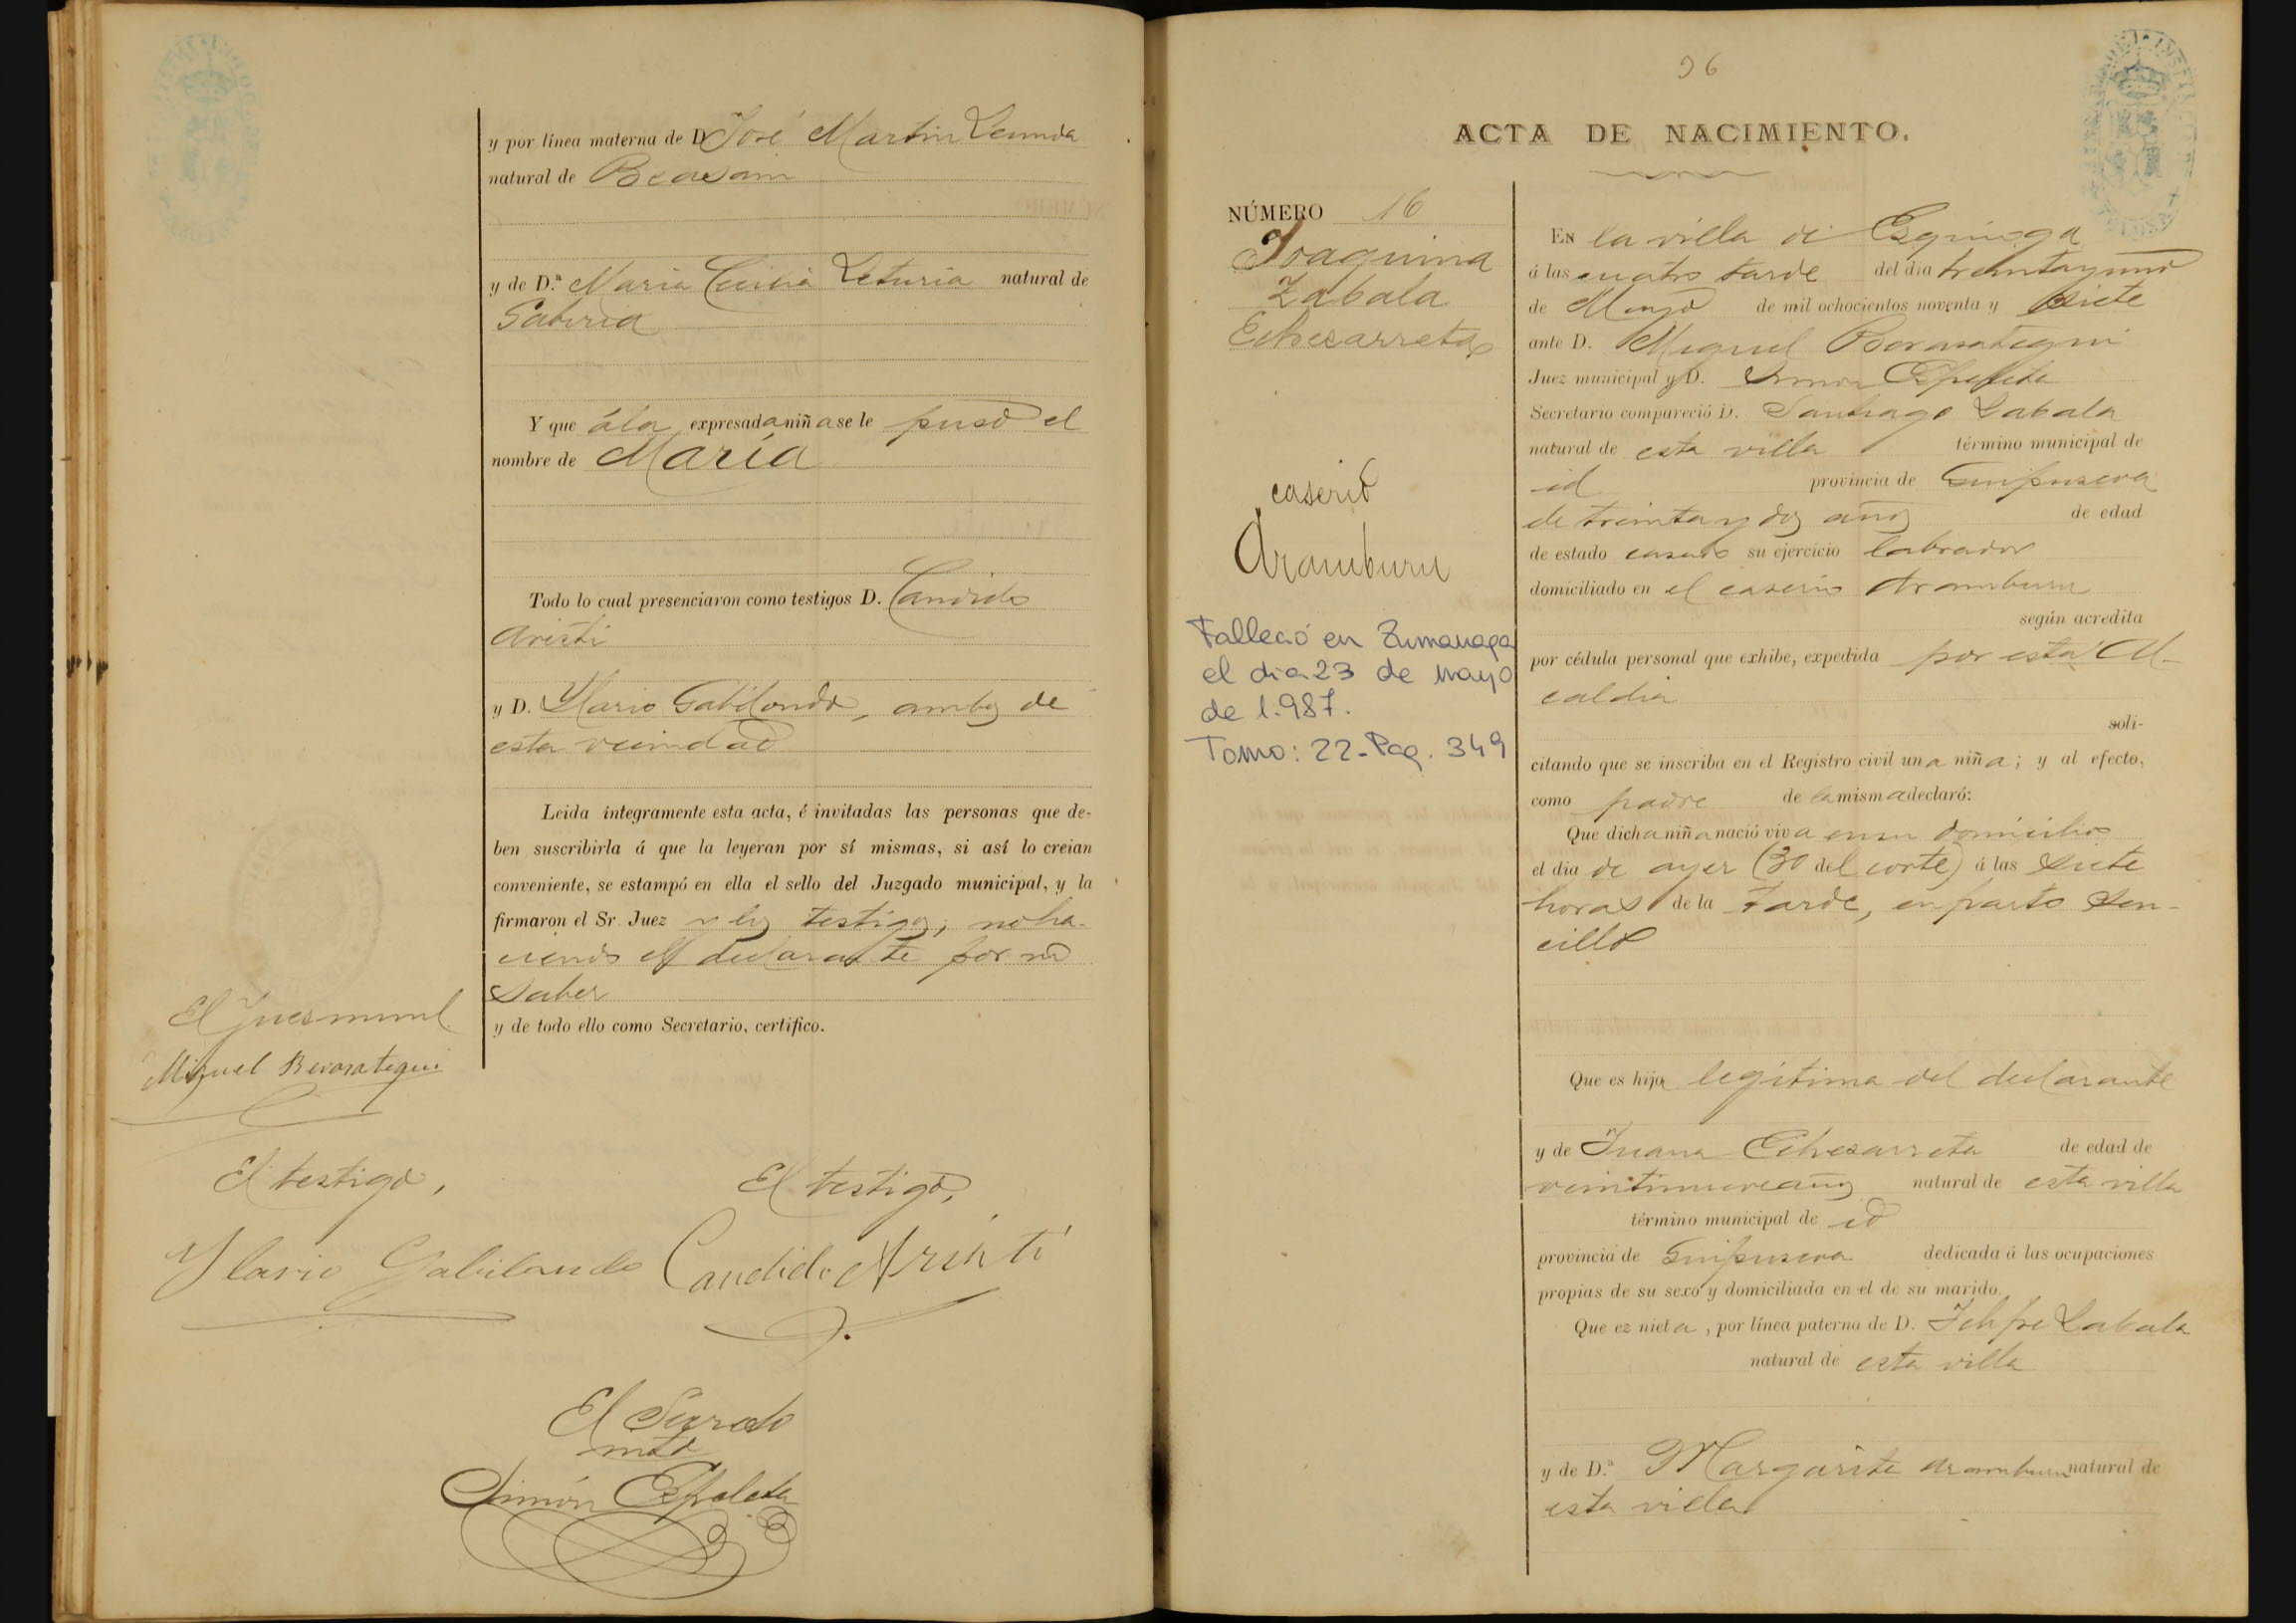 y por línea materna de D. José Martin Lecunda
natural de Beasain
y de D.ª Maria Cecilia Leturia natural de
Gabiria
Y que á la expresada niña se le puso el
nombre de María
Todo lo cual presenciaron como testigos D. Candido
Aristi
y D. Ylario Gabilondo, ambos de
esta vecindad
Leida íntegramente esta acta, é invitadas las personas que de-
ben suscribirla á que la leyeran por sí mismas, si así lo creian
conveniente, se estampó en ella el sello del Juzgado municipal, y la
firmaron el Sr. Juez y los testigos, no ha-
ciendo el declarante por no
saber
y de todo ello como Secretario, certifico.
El Juez munl
Miguel Berasategui
El testigo,
El testigo,
Ylario Gabilondo
Candido Aristi
El Secreto
Simón Ezpeleta
96
ACTA DE NACIMIENTO.
NÚMERO 16
Joaquina
Zabala
Echezarreta
caserio
Aramburu
Falleció en Zumarraga
el dia 23 de mayo
de 1.987.
Tomo: 22 - Pag. 349
EN la villa de Ezquioga
á las cuatro tarde del dia treinta y uno
de Mayo de mil ochocientos noventa y siete
ante D. Miguel Berasategui
Juez municipal y D. Simon Ezpeleta
Secretario compareció D. Santiago Zabala
natural de esta villa término municipal de
id provincia de Guipuzcoa
de treinta y dos años de edad
de estado casado su ejercicio labrador
domiciliado en el caserio Aramburu
según acredita
por cédula personal que exhibe, expedida por esta Al-
caldia
soli-
citando que se inscriba en el Registro civil una niña; y al efecto,
como padre de la misma declaró:
Que dicha niña nació viva en su domicilio
el dia de ayer (30 del corte) á las siete
horas de la tarde, en parto sen-
cillo
Que es hija legítima del declarante
y de Juana Echezarreta de edad de
veintinueve años natural de esta villa
término municipal de id
provincia de Guipuzcoa dedicada á las ocupaciones
propias de su sexo y domiciliada en el de su marido.
Que es nieta, por línea paterna de D. Felipe Zabala
natural de esta villa
y de D.ª Margarita Aramburu natural de
esta villa